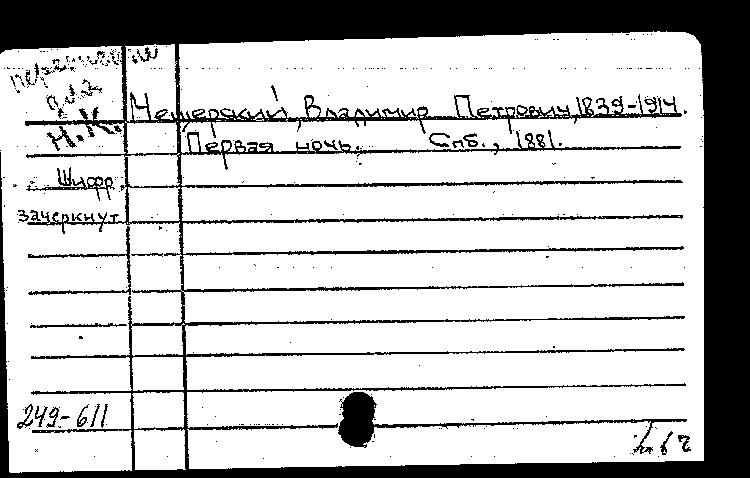 для
Н.К.
Мещерский, Владимир Петрович, 1839-1914.
Первая ночь. Спб., 1881.
Шифр
зачеркнут
249-611